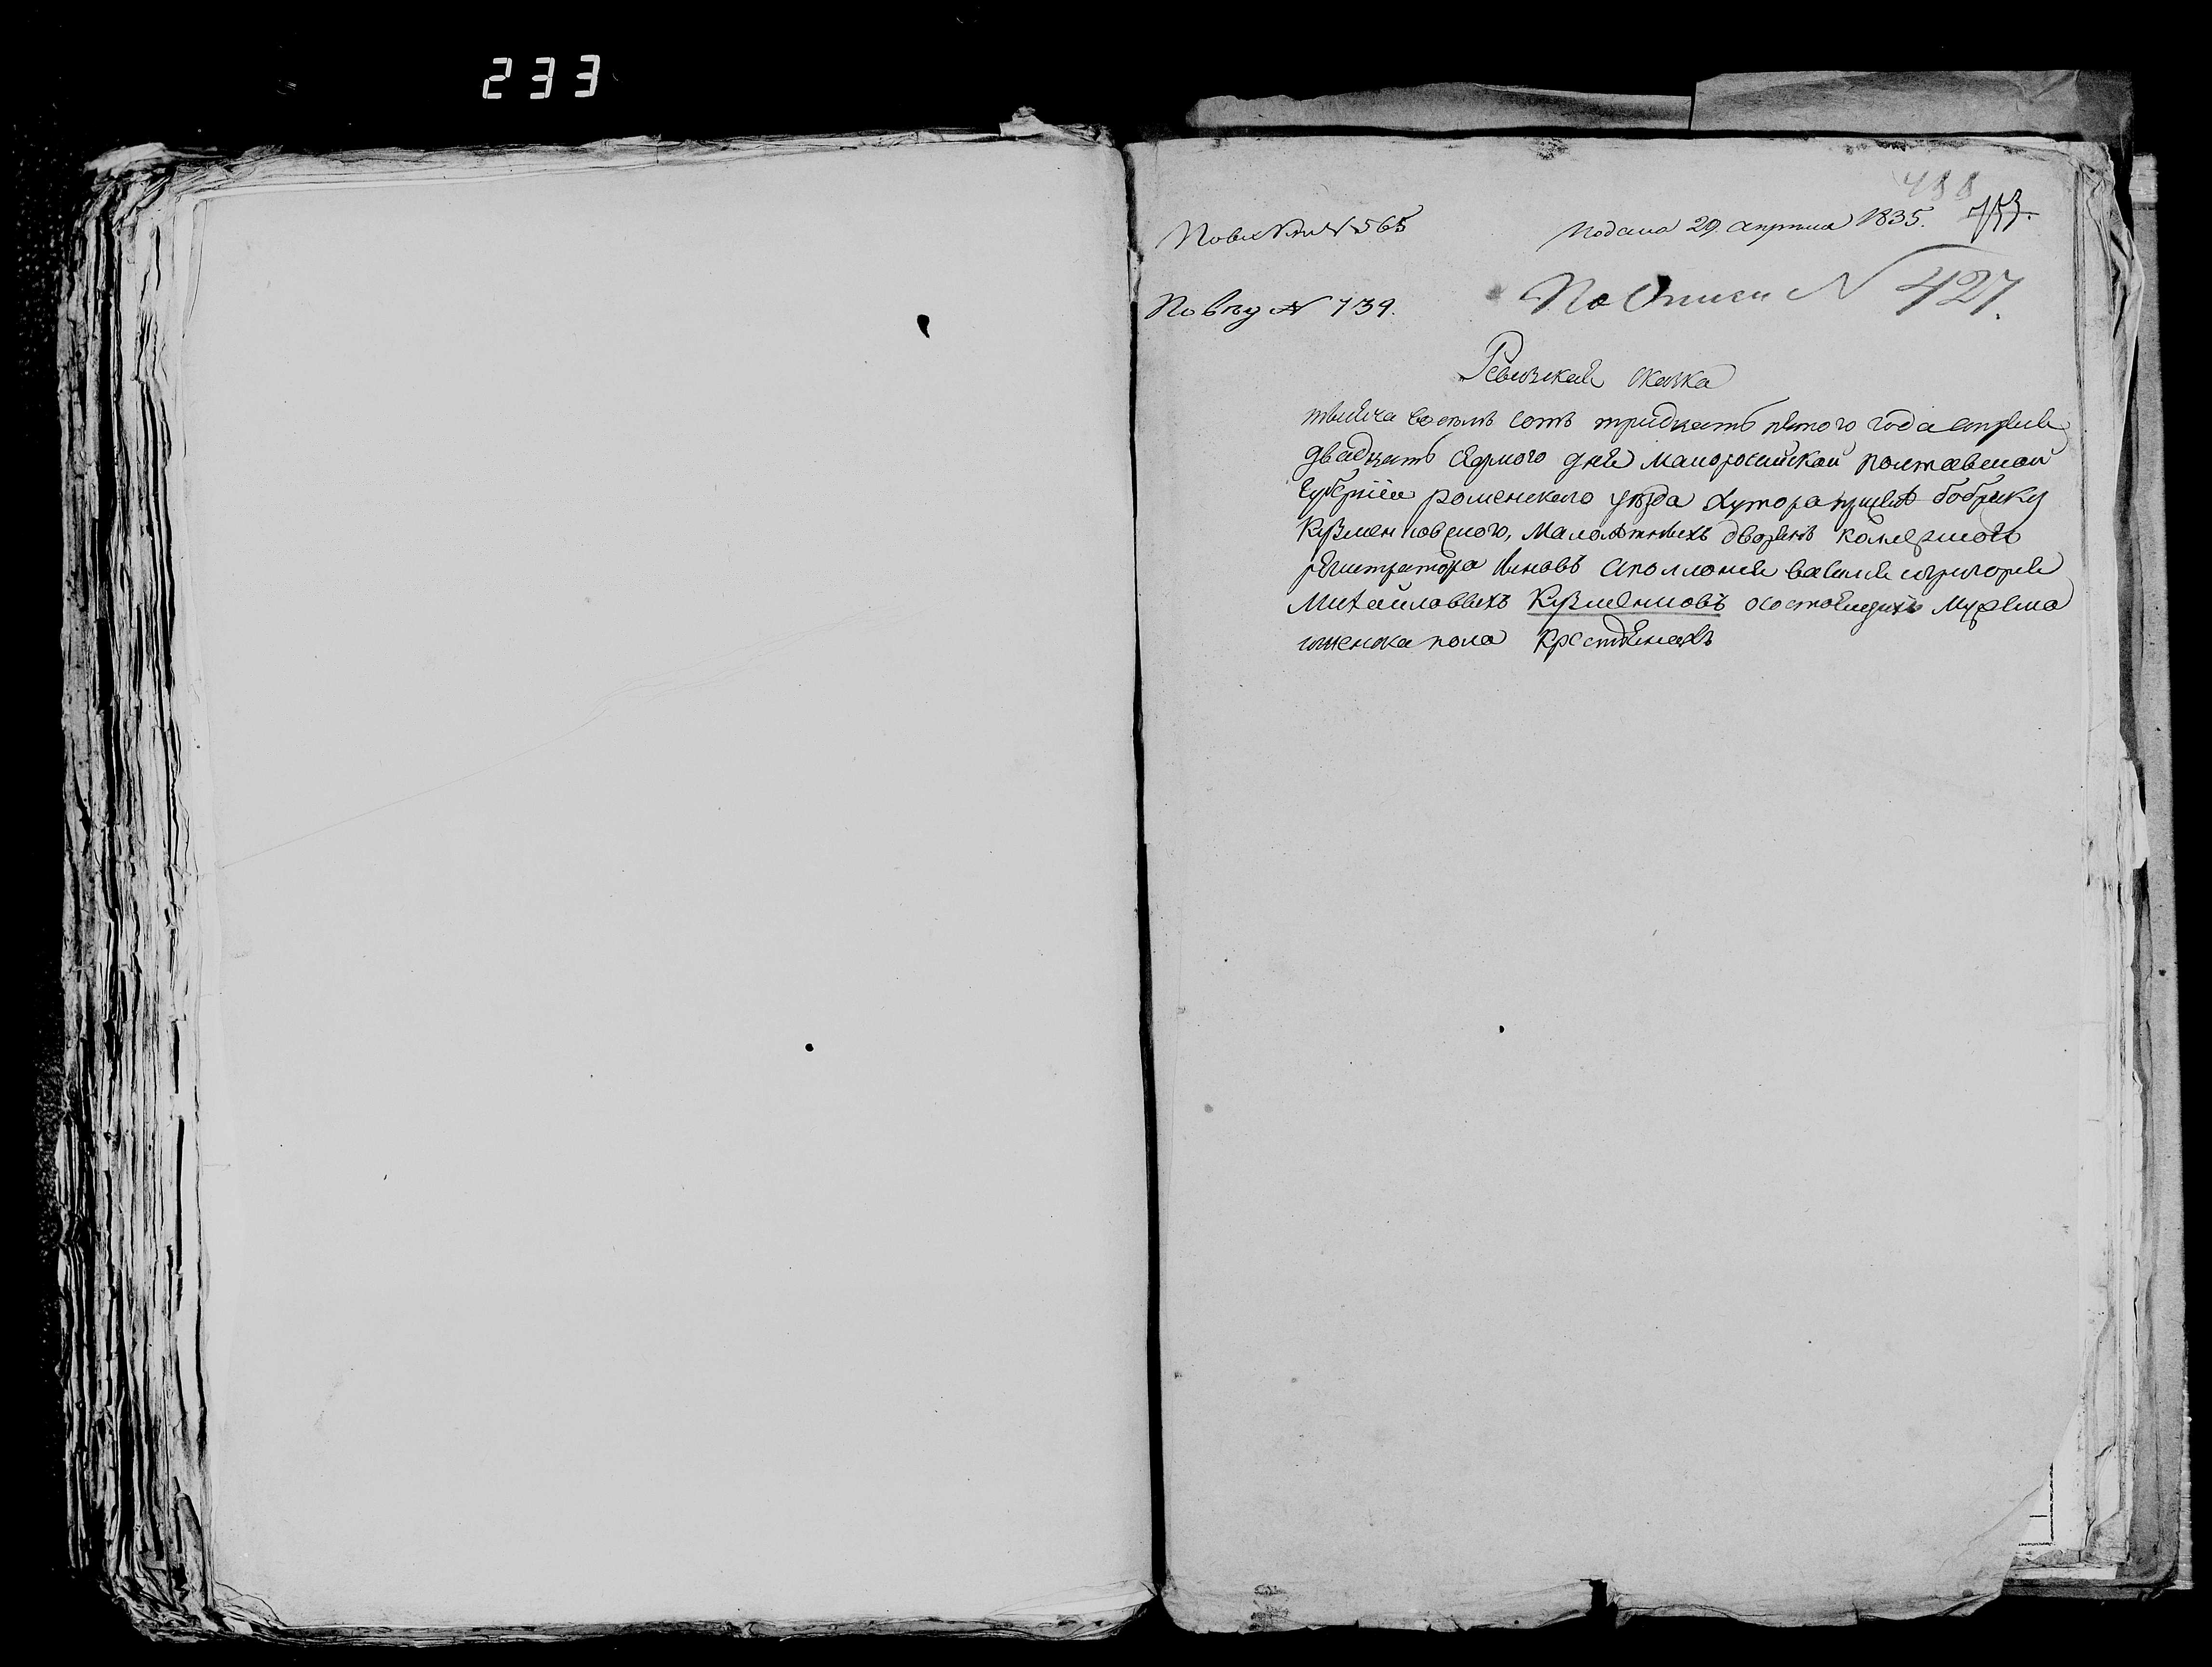 233
488
Подана 29 апреля 1835.
№ 565
По вху № 739.
По Описи № 427.
Ревизская сказка
тысяча восемъ сотъ тридцать пятого года апреля
двадцать седмого дня малоросийской полтавской
Губернии роменского уезда хутора бобрику
Кузменковского, малолѣтнихъ дворянъ колежского
регистратора синовъ аполлония василия игригория
Михайловыхъ Кузменковъ осостоящихъ мужеска
иженска пола крестянахъ